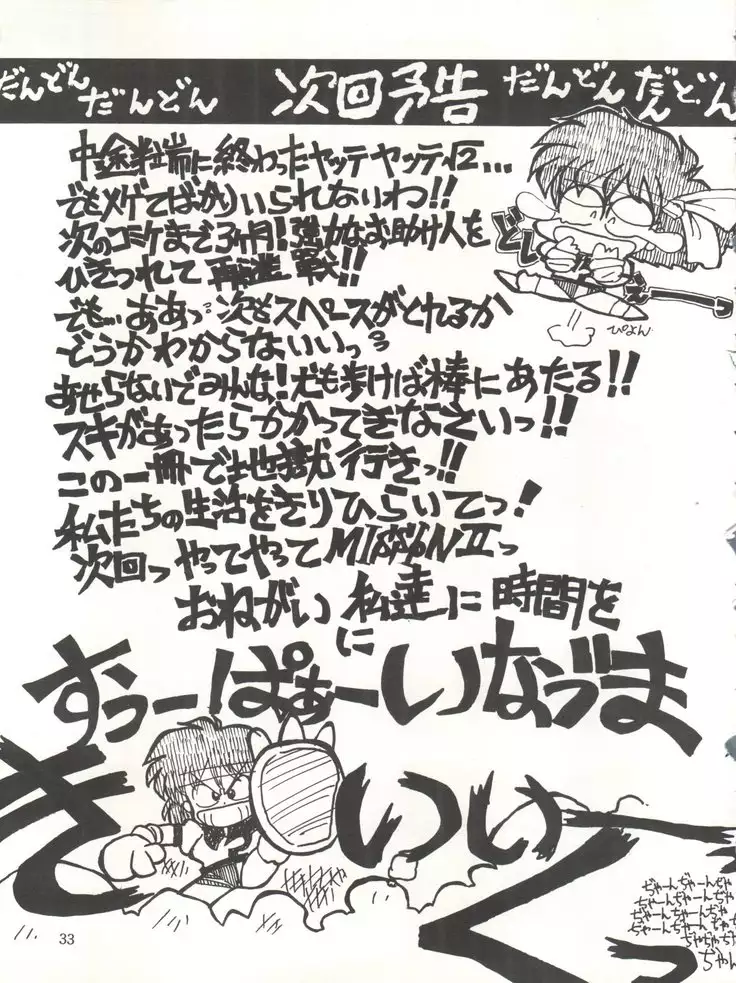 だんどん だんどん 次回予告 だんどん だんどん
中途半端に終わったヤッテヤッテ√2...
でもメゲてばかりいられないわ!!
次のコミケまで3ヶ月!強力なお助け人を
ひきつれて再挑戦!!
でも…ああっ次もスペースがとれるか
どうかわからないいっ
あせらないでみんな!犬も歩けば棒にあたる!!
スキがあったらかかってきなさいっ!!
この一冊で地獄行きっ!!
私たちの生活をきりひらいてっ!
次回っやってやってMISSIONⅡっ
おねがい私達に時間を
に
すぅーぱぁーいなづま
きいぃくっ
どん
ぴょん
ぢゃーんぢゃーんぢゃ
ーんぢゃーんぢゃーん
ぢゃーんぢゃーんぢゃ
ーんぢゃーんぢゃーん
ぢゃぢゃぢゃ
ぢゃん
33